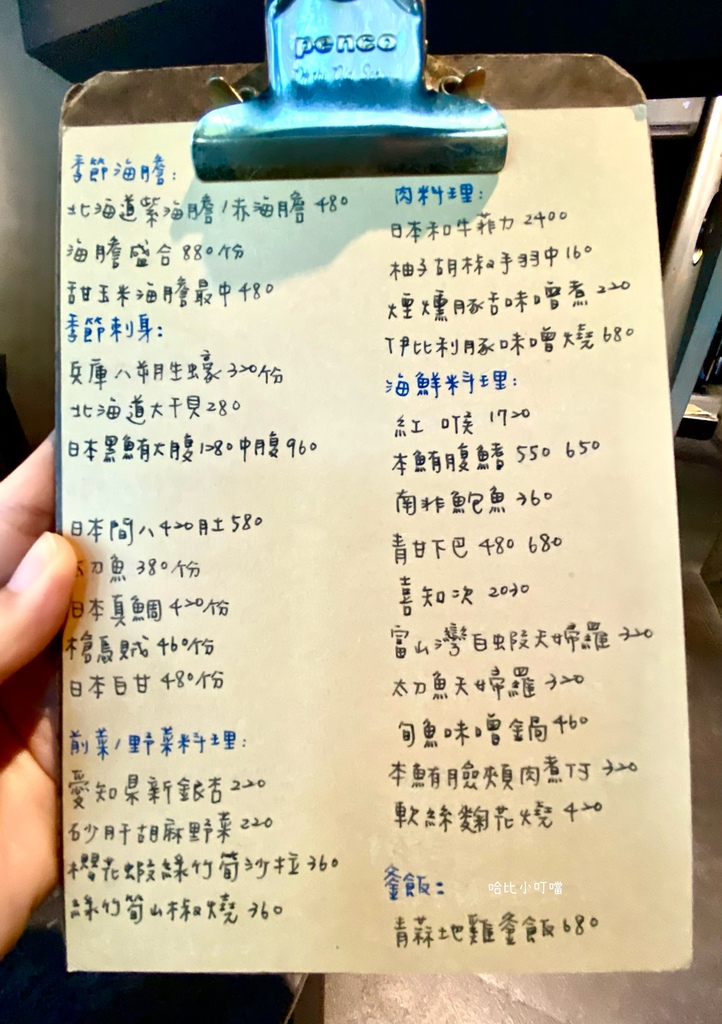 penco
季節海膽:
北海道紫海膽/赤海膽 480
海膽盛合 880份
甜玉米海膽最中 480
季節刺身:
兵庫八朔生蠔 320份
北海道大干貝 280
日本黑鮪大腹 1280 中腹 960
日本間八 420 肚 580
太刀魚 380份
日本真鯛 420份
槍烏賊 460份
日本白甘 480份
前菜/野菜料理:
愛知県新銀杏 220
砂肝胡麻野菜 220
櫻花蝦綠竹筍沙拉 360
綠竹筍山椒燒 360
肉料理:
日本和牛菲力 2400
柚子胡椒手羽中 160
煙燻豚舌味噌煮 220
伊比利豚味噌燒 680
海鮮料理:
紅喉 1720
本鮪腹鰭 550 650
南非鮑魚 360
青甘下巴 480 680
喜知次 2030
富山灣白蝦天婦羅 320
太刀魚天婦羅 320
旬魚味噌鍋 460
本鮪臉頰肉煮付 320
軟絲麴花燒 420
釜飯:
青蒜地雞釜飯 680
哈比小叮噹